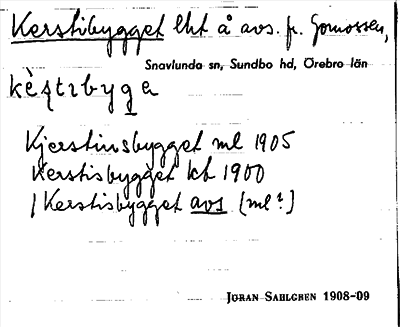 Kerstibygget lht å avs. fr. Gomossen,
Snavlunda sn, Sundbo hd, Örebro län
Kjerstinsbygget ml 1905
Kerstisbygget kb 1900
/ Kerstisbygget avs [ml?]
JÖRAN SAHLGREN 1908-09